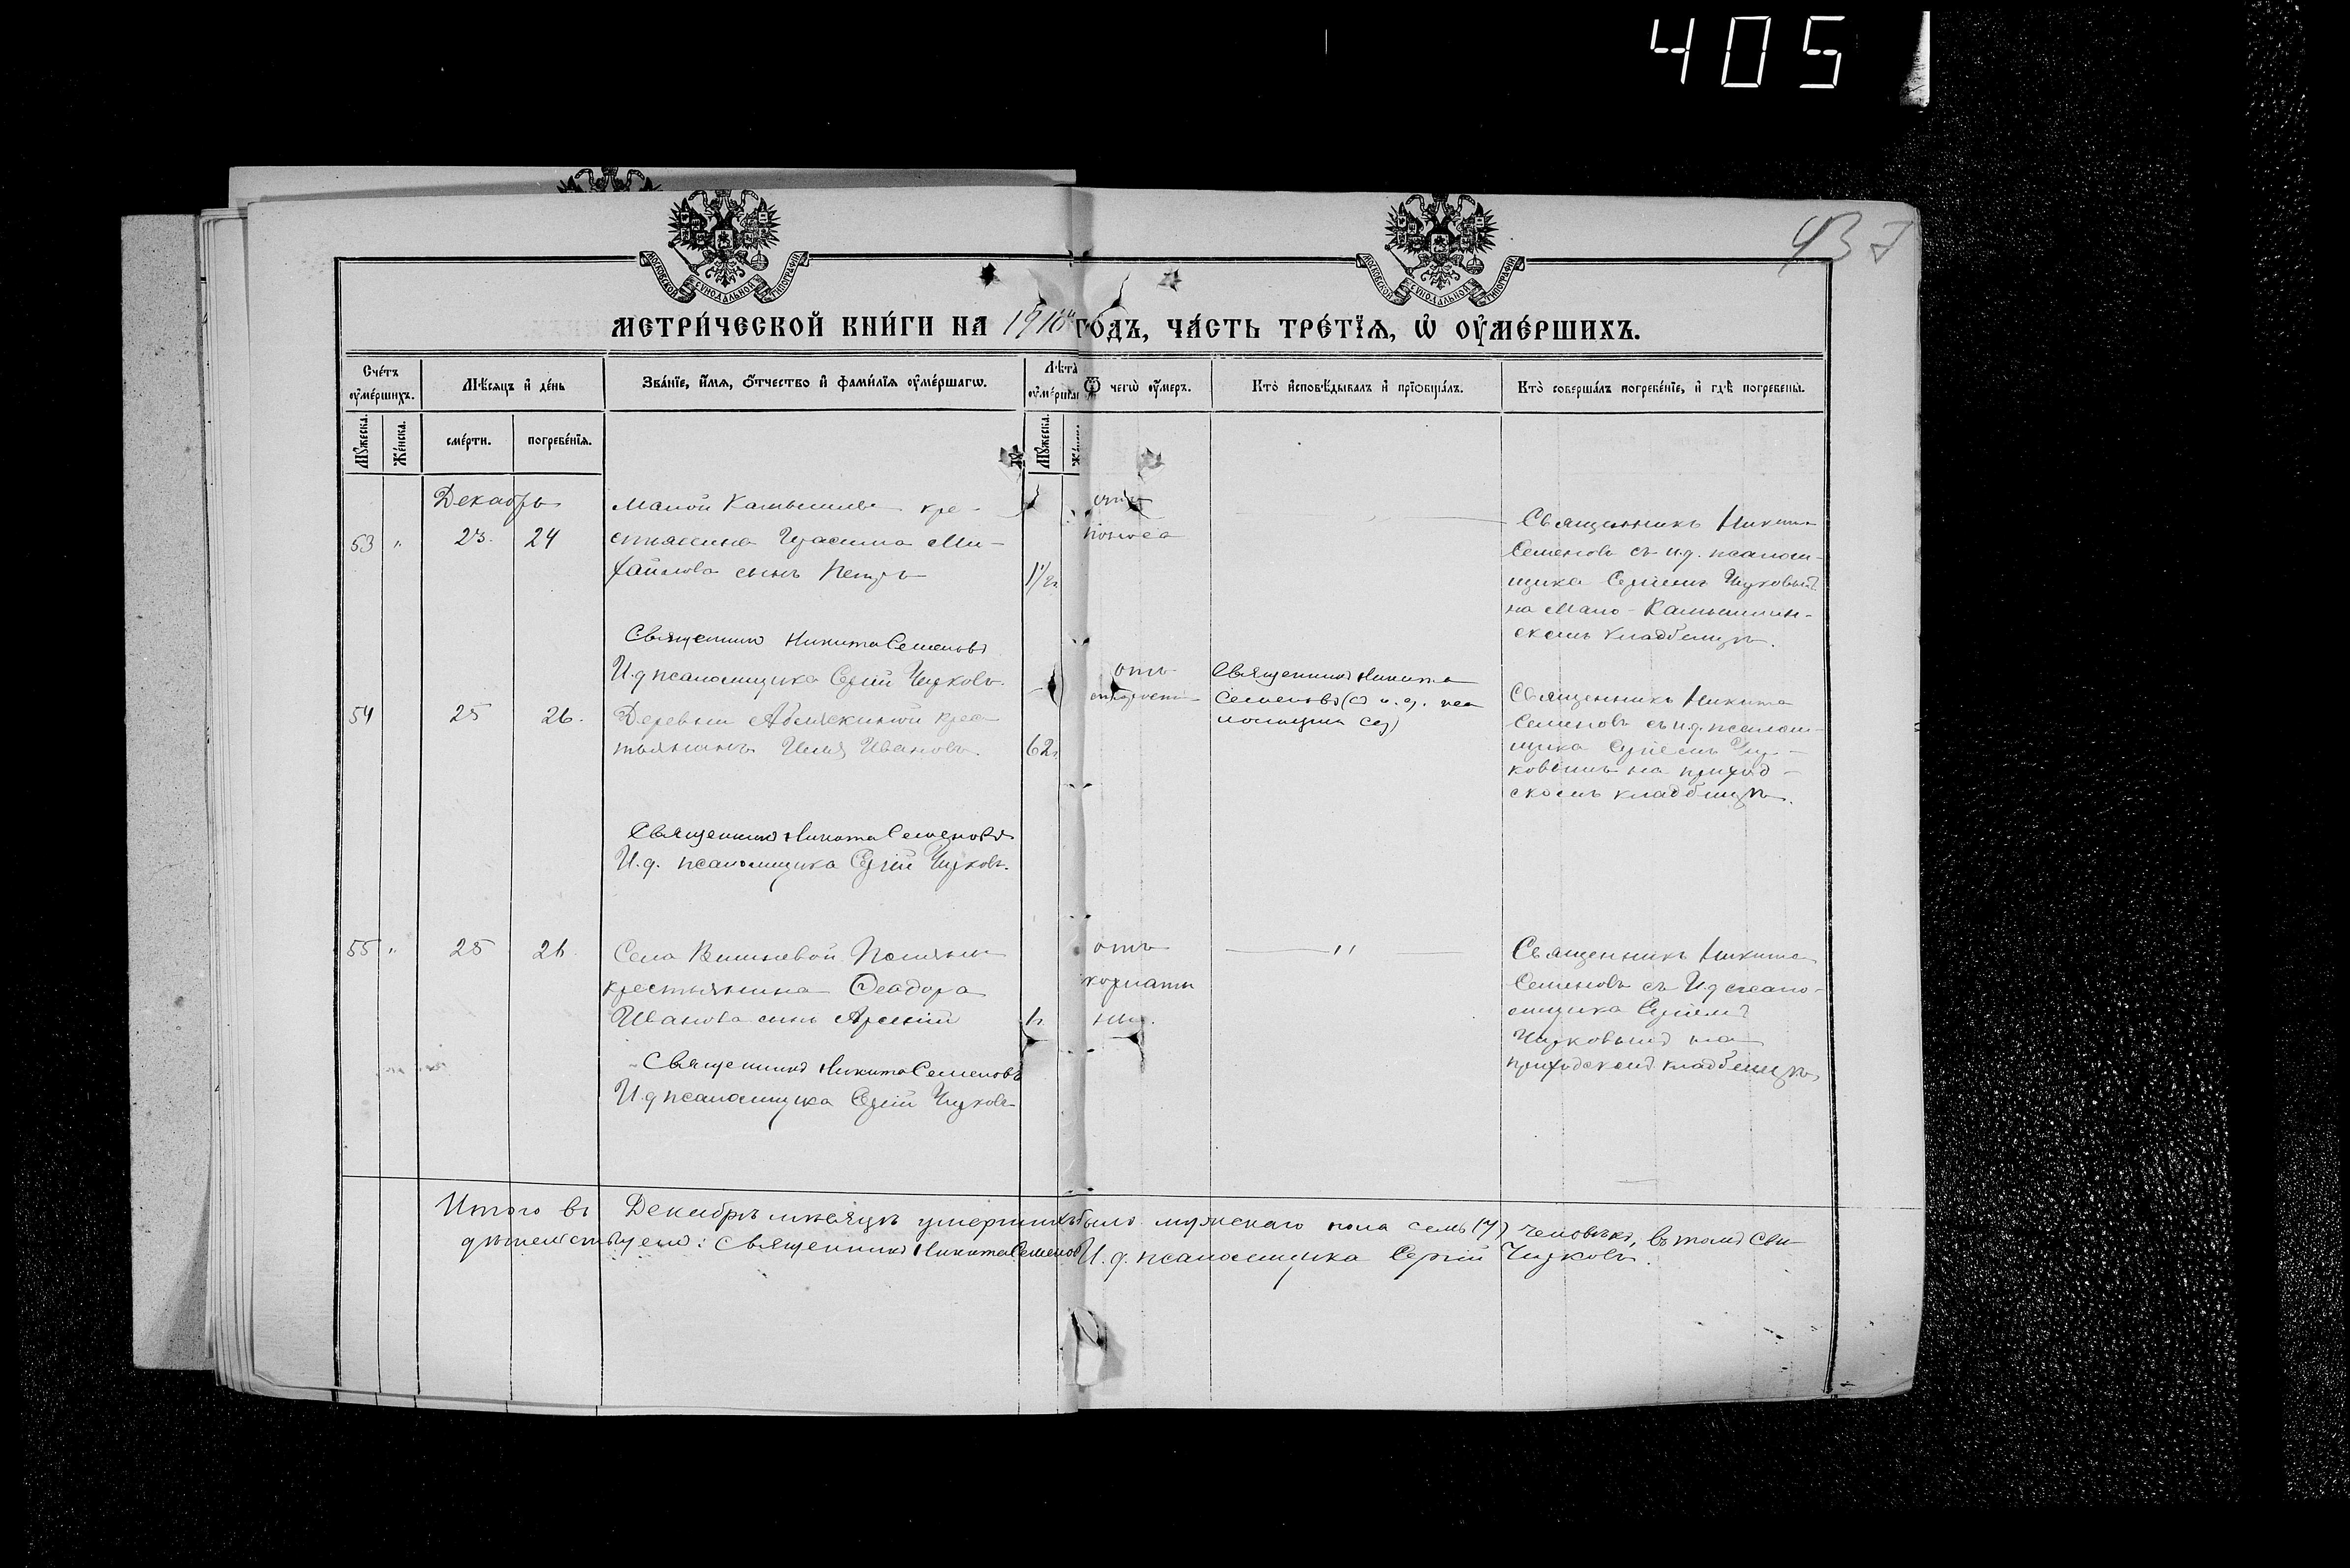 405
437
МОСКОВСКОЙ СУНОДАЛЬНОЙ ТИПОГРАФІИ
МОСКОВСКОЙ СУНОДАЛЬНОЙ ТИПОГРАФІИ
МЕТРИ́ЧЕСКОЙ КНИ́ГИ НА 1910й ГО́ДЪ, ЧА́СТЬ ТРЕ́ТЇѦ, Ѡ҆ ОУ҆МЕ́РШИХЪ.
Сче́тъ оу҆ме́ршихъ.
Мѣ́сяцъ и҆ де́нь
Зва́нїе, и҆́мя, ѻ҆́тчество и҆ фами́лїя оу҆ме́ршагѡ.
Лѣ́та оу҆ме́ршагѡ
Ѿ чегѡ̀ оу҆́меръ.
Кто̀ и҆сповѣ́дывалъ и҆ прїѡбща́лъ.
Кто̀ соверша́лъ погребе́нїе, и҆ гдѣ̀ погребены̀.
Мꙋ́жеска.
Же́нска.
сме́рти.
погребе́нїя.
Мꙋ́жеска.
Декабрь
53 " 23. 24
Малой Камышинки кре-
стьянина Герасима Ми-
хайлова сынъ Петръ
1 1/2 г.
отъ
поноса
Священникъ Никита
Семеновъ съ и.д. псалом-
щика Сергіемъ Чуковымъ
на Мало-Камышин-
скомъ кладбищѣ.
Священникъ Никита Семеновъ
И.д псаломщика Сергій Чуковъ.
54 25 26.
Деревни крес
тьянинъ Илья Ивановъ.
62 г.
отъ
старости
Священникъ Никита
Семеновъ (съ и. д. пса
ломщика Сер)
Священникъ Никита
Семеновъ съ и.д. псалом-
щика Сергіемъ Чу-
ковымъ на приход-
скомъ кладбищѣ.
Священникъ Никита Семеновъ
И.д. псаломщика Сергій Чуковъ.
55 " 25 26.
Села Вишневой Поляны
крестьянина Ѳеодора
Иванова сынъ Арсеній
1 г.
отъ
"
Священникъ Никита
Семеновъ съ И.д псало-
мщика Сергіемъ
Чуковымъ на
приходскомъ кладбищѣ,
Священникъ Никита Семеновъ
И.д псаломщика Сергій Чуковъ
Итого въ Декабрѣ мѣсяцѣ умершихъ было мужскаго пола семь (7) человѣкъ, въ томъ сви-
дѣтельствуемъ: Священникъ Никита Семеновъ И. д. псаломщика Сергій Чуковъ.